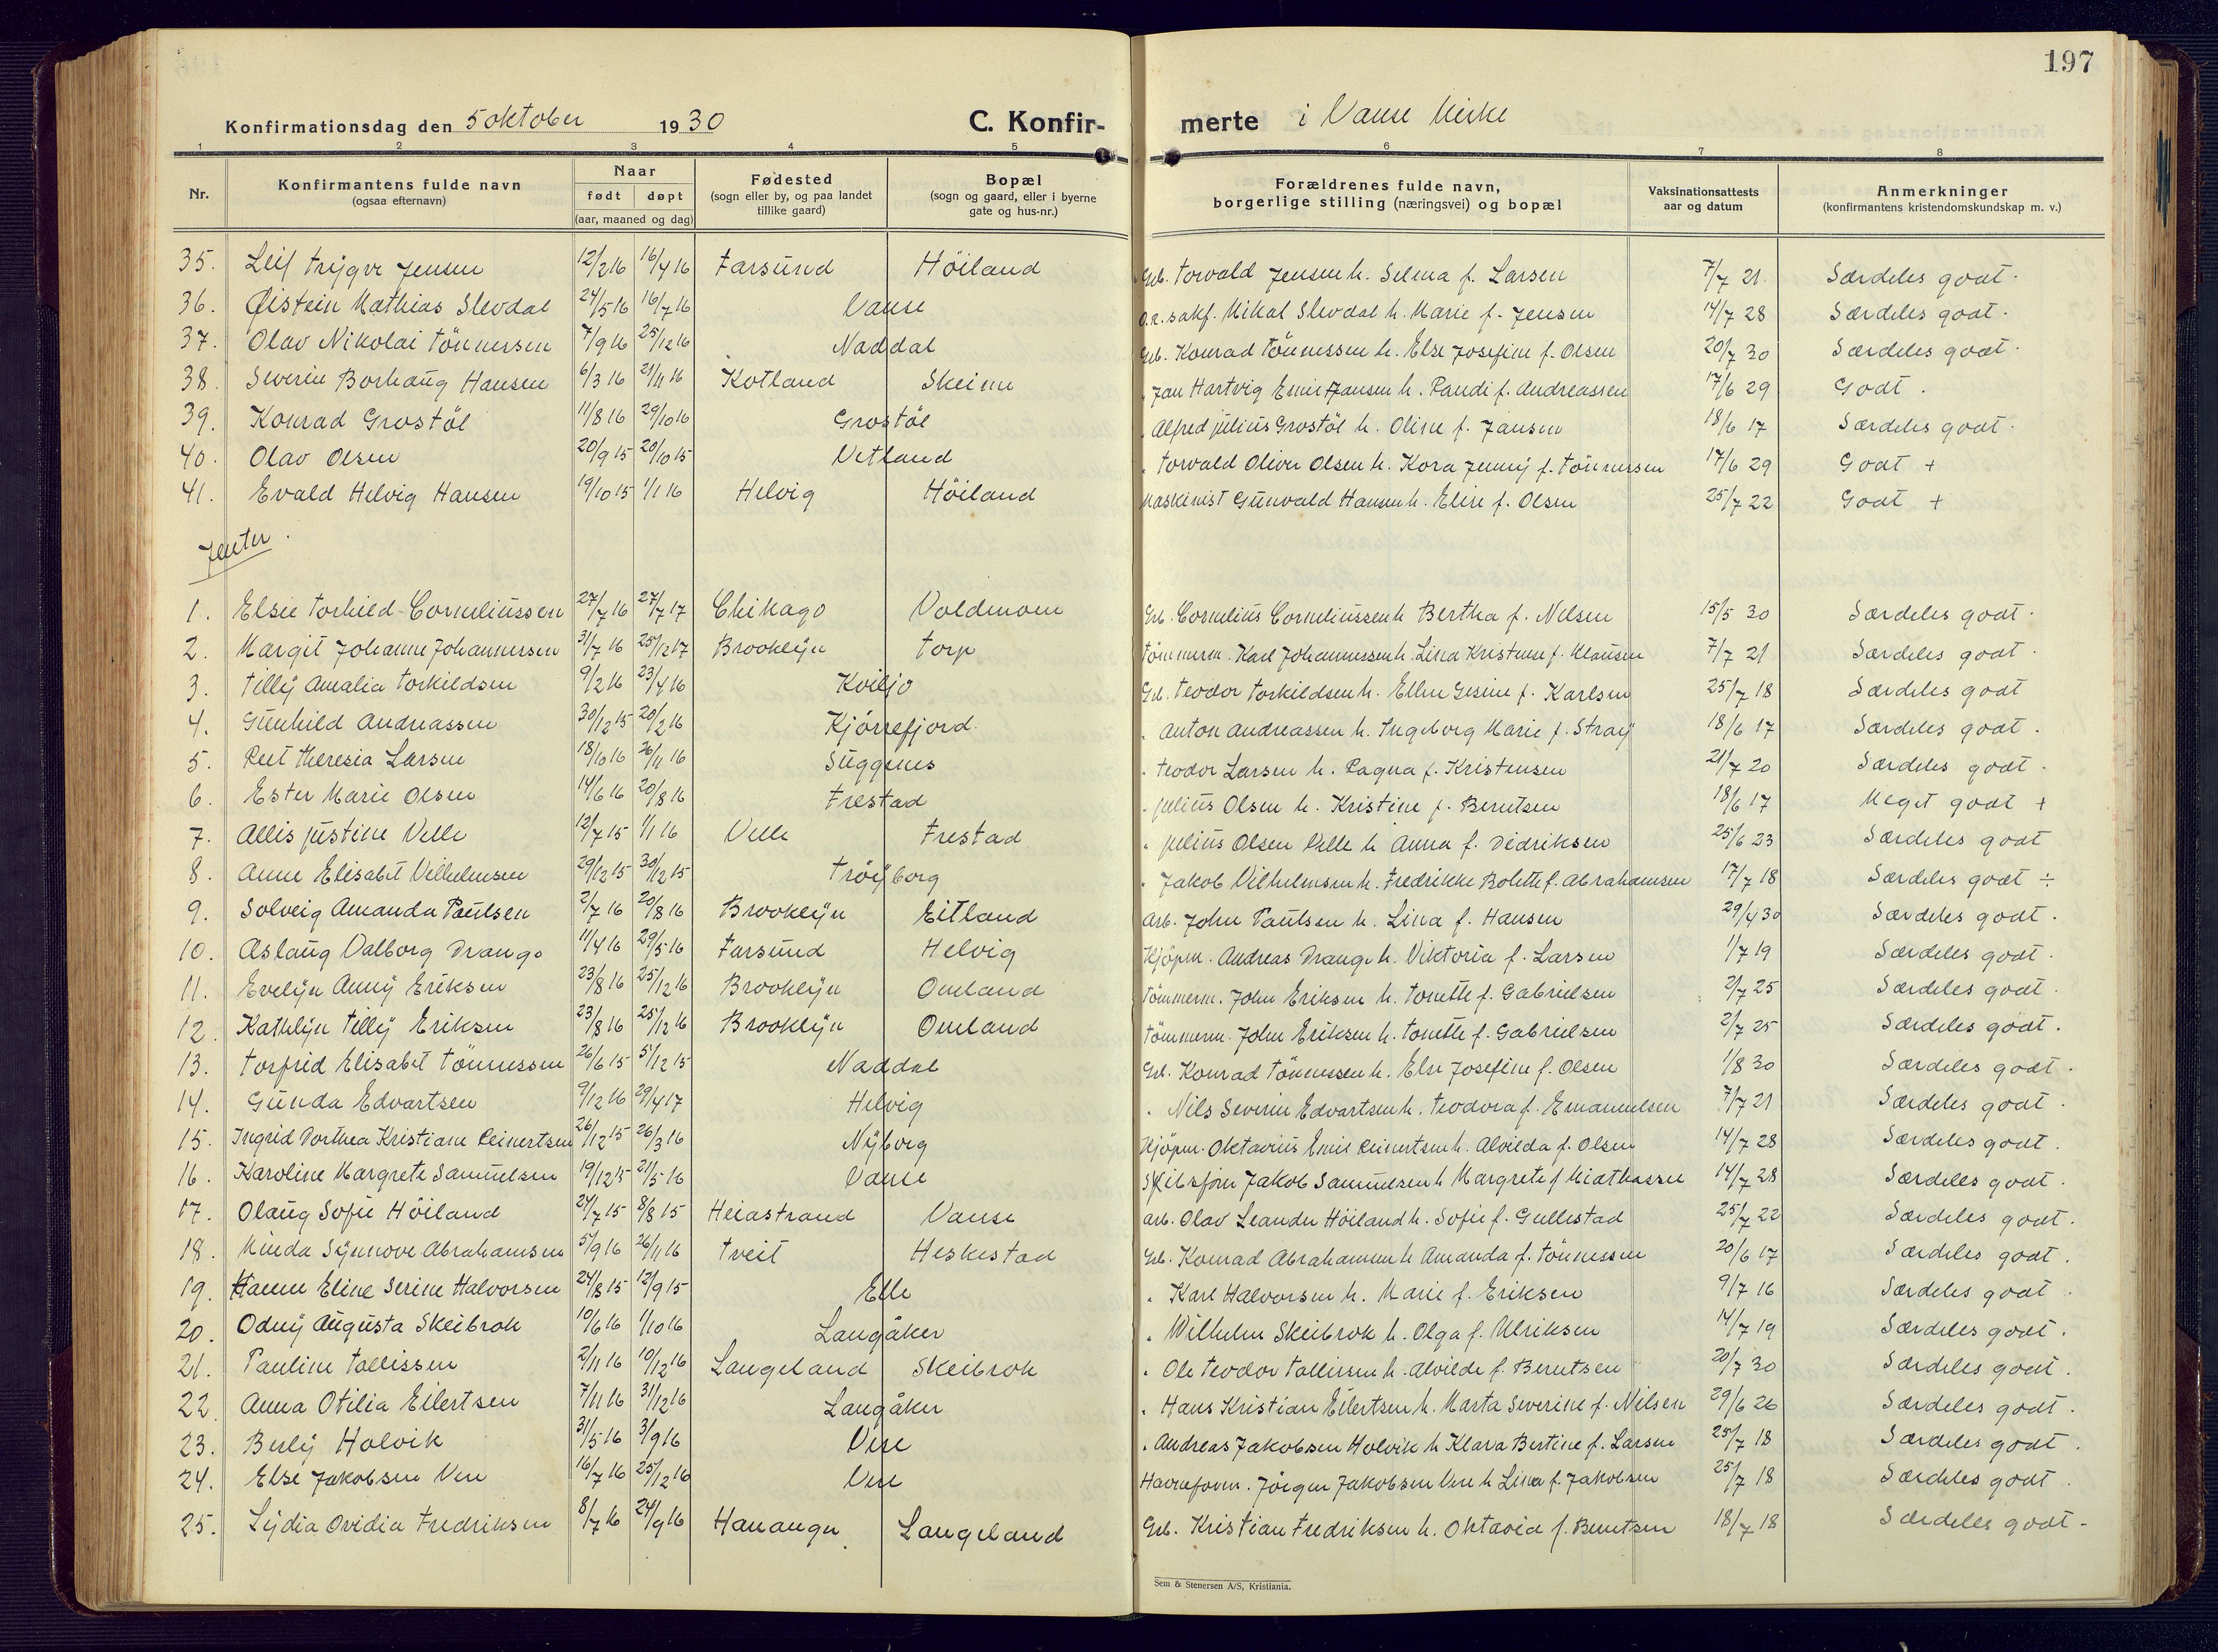 197
Konfirmationsdag den 5 oktober 1930 C. Konfir- merte i Vanse kirke
1 2 3 4 5 6 7 8
Nr. Konfirmantens fulde navn (ogsaa efternavn) Naar født døpt (aar, maaned og dag) Fødested (sogn eller by, og paa landet tillike gaard) Bopæl (sogn og gaard, eller i byerne gate og hus-nr.) Forældrenes fulde navn, borgerlige stilling (næringsvei) og bopæl Vaksinationsattests aar og datum Anmerkninger (konfirmantens kristendomskundskap m. v.)
35. Leif Trygve Jensen 12/2 16 16/4 16 Farsund Höiland Grb. Torvald Jensen h. Selma f. Larsen 7/7 21. Særdeles godt.
36. Øistein Mathias Slevdal 24/5 16 16/7 16 Vanse o.r.sakf. Mikal Slevdal h. Marie f. Jensen 14/7 28 Særdeles godt.
37. Olav Nikolai Tönnessen 7/9 16 25/12 16 Naddal Grb. Konrad Tönnessen h. Else Josefine f. Olsen 20/7 30 Særdeles godt.
38. Severin Borhaug Hansen 6/3 16 21/11 16 Kotland Skeime " Jan Hartvig Emil Hansen h. Randi f. Andreassen 17/6 29 Godt.
39. Konrad Grostöl 11/8 16 29/10 16 Grostöl " Alfred Julius Grostöl h. Oline f. Jansen 18/6 17 Særdeles godt.
40. Olav Olsen 20/9 15 20/10 15 Vetland " Torvald Oliver Olsen h. Kora Jenny f. Tönnessen 17/6 29 Godt +
41. Evald Helvig Hansen 19/10 15 1/1 16 Helvig Höiland Maskinist Gunvald Hansen h. Elise f. Olsen 25/7 22 Godt +
Jenter.
1. Elsie Torhild Corneliussen 27/7 16 27/7 17 Chikago Voldmoen Grb. Cornelius Corneliussen h Bertha f. Nilsen 15/5 30 Særdeles godt.
2. Margit Johanne Johannessen 31/7 16 25/12 17 Brooklyn Torp Tömmerm. Karl Johannessen h. Lina Kristense f. Klausen 7/7 21 Særdeles godt.
3. Tilly Amalia Torkildsen 9/2 16 23/4 16 Kviljo Grb. Teodor Torkildsen h. Ellen Gesine f. Karlsen 25/7 18 Særdeles godt
4. Gunhild Andreassen 30/12 15 20/2 16 Kjörrefjord. " Anton Andreassen h. Ingeborg Marie f. Stray 18/6 17 Særdeles godt.
5. Rut Theresia Larsen 18/10 16 26/11 16 Suggenes " Teodor Larsen h. Ragna f. Kristensen 21/7 20 Særdeles godt.
6. Ester Marie Olsen 14/6 16 20/8 16 Frestad " Julius Olsen h. Kristine f. Berntsen 18/6 17 Meget godt +
7. Allis Justine Velle 12/7 15 1/1 16 Velle Frestad " Julius Olsen Velle h Anna f. Didriksen 25/6 23 Særdeles godt
8. Anne Elisabet Vilhelmsen 29/12 15 30/12 15 Tröyborg " Jakob Vilhelmsen h. Fredrikke Bolette f. Abrahamsen 17/7 18 Særdeles godt ÷
9. Solveig Amanda Paulsen 2/7 16 20/8 16 Brooklyn Eitland Arb. John Paulsen h. Lina f. Hansen 29/4 30 Særdeles godt.
10. Aslaug Valborg Drange 11/4 16 29/5 16 Farsund Helvig Kjöpm. Andreas Drange h. Viktoria f. Larsen 1/7 19 Særdeles godt.
11. Evelyn Anny Eriksen 23/8 16 25/12 16 Brooklyn Omland Tömmerm. John Eriksen h. Tonette f. Gabrielsen 2/7 25 Særdeles godt.
12. Kathlyn Tilly Eriksen 23/8 16 25/12 16 Brooklyn Omland Tömmerm. John Eriksen h. Tonette f. Gabrielsen 2/7 25 Særdeles godt.
13. Torfrid Elisabet Tönnessen 26/6 15 5/12 15 Naddal Grb. Konrad Tönnessen h. Else Josefine f. Olsen 1/8 30 Særdeles godt.
14. Gunda Edvartsen 9/12 16 29/4 17 Helvig " Nils Severin Edvartsen h. Teodora f. Emanuelsen 7/7 21 Særdeles godt.
15. Ingrid Dorthea Kristiane Reinertsen 26/12 15 26/3 16 Nyborg Kjöpm. Oktavius Emil Reinertsen h. Alvilda f. Olsen 14/7 28 Særdeles godt.
16. Karoline Margrete Samuelsen 19/12 15 21/5 16 Vanse Skibsförer Jakob Samuelsen h Margrete f Miathassen 14/7 28 Særdeles godt.
17. Olaug Sofie Höiland 24/7 15 8/8 15 Heiastrand Vanse Arb. Olav Leander Höiland h. Sofie f. Gullestad 25/7 22 Særdeles godt.
18. Minda Synnove Abrahamsen 5/9 16 26/11 16 Tveit Heskestad Grb. Konrad Abrahamsen h Amanda f. Tönnessen 20/6 17 Særdeles godt.
19. Hanne Eline Serine Halvorsen 24/8 15 12/9 15 Elle " Karl Halvorsen h. Marie f. Eriksen 9/7 16 Særdeles godt
20. Odny Augusta Skeibrok 10/6 16 1/10 16 Langåker " Wilhelm Skeibrok h. Olga f. Ulriksen 14/7 19 Særdeles godt.
21. Pauline Tallissen 2/11 16 10/12 16 Langeland Skeibrok " Ole Teodor Tallissen h. Alvilde f. Berntsen 20/7 30 Særdeles godt.
22. Anna Otilia Eilertsen 7/11 16 31/12 16 Langåker " Hans Kristian Eilertsen h. Marta Severine f. Nilsen 29/6 26 Særdeles godt.
23. Berly Holvik 31/5 16 3/9 16 Vere " Andreas Jakobsen Holvik h Klara Bertine f. Larsen 25/7 18 Særdeles godt.
24. Else Jakobsen Vere 16/7 16 25/12 16 Vere Havneform. Jörgen Jakobsen Vere h Lina f. Jakobsen 25/7 18 Særdeles godt.
25. Lydia Ovidia Fredriksen 8/7 16 24/9 16 Hananger Langeland Grb. Kristian Fredriksen h. Oktavia f. Berntsen 18/7 18 Særdeles godt.
Sem & Stenersen A/S, Kristiania.